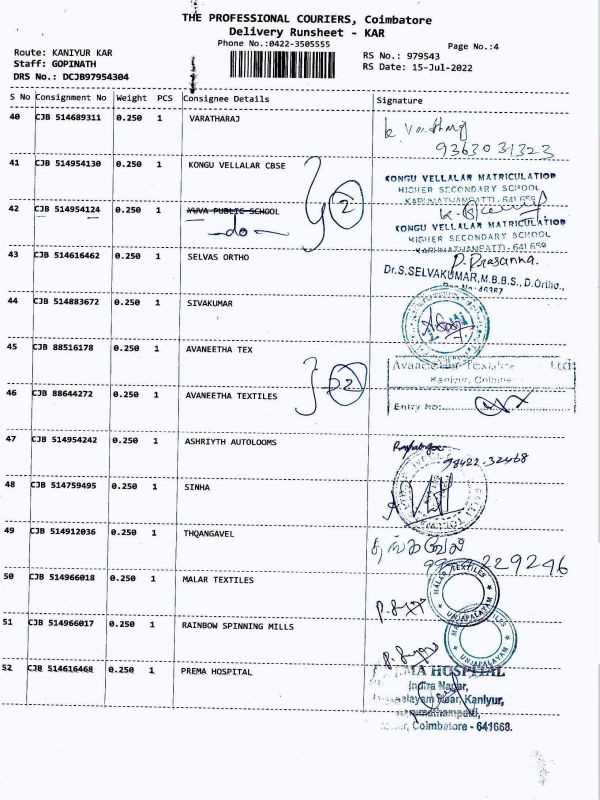 THE PROFESSIONAL COURIERS, Coimbatore
Delivery Runsheet - KAR
Phone No.:0422-3505555
Page No.:4
Route: KANIYUR KAR
Staff: GOPINATH
DRS No.: DCJB97954304
RS No.: 979543
RS Date: 15-Jul-2022
S No Consignment No Weight PCS Consignee Details Signature
40 CJB 514689311 0.250 1 VARATHARAJ
9363031323
41 CJB 514954130 0.250 1 KONGU VELLALAR CBSE
2
KONGU VELLALAR MATRICULATION
HIGHER SECONDARY SCHOOL
KARUMATHAMPATTI - 641 659
42 CJB 514954124 0.250 1 YUVA PUBLIC SCHOOL
-do-
KONGU VELLALAR MATRICULATION
HIGHER SECONDARY SCHOOL
KARUMATHAMPATTI - 641 659
43 CJB 514616462 0.250 1 SELVAS ORTHO
P. Prasanna.
Dr.S.SELVAKUMAR,M.B.B.S., D.Ortho.,
44 CJB 514883672 0.250 1 SIVAKUMAR
45 CJB 88516178 0.250 1 AVANEETHA TEX
2
Kaniyur,
46 CJB 88644272 0.250 1 AVANEETHA TEXTILES
Entry No:
47 CJB 514954242 0.250 1 ASHRIYTH AUTOLOOMS
98422.32468
48 CJB 514759495 0.250 1 SINHA
49 CJB 514912036 0.250 1 THQANGAVEL
தங்கவேல்
229246
50 CJB 514966018 0.250 1 MALAR TEXTILES
MALAR TEXTILES
UNJAPALAYAM
51 CJB 514966017 0.250 1 RAINBOW SPINNING MILLS
UNJAPALAYAM
52 CJB 514616468 0.250 1 PREMA HOSPITAL
HOSPITAL
Indira Nagar,
Near, Kaniyur,
Coimbatore - 641668.